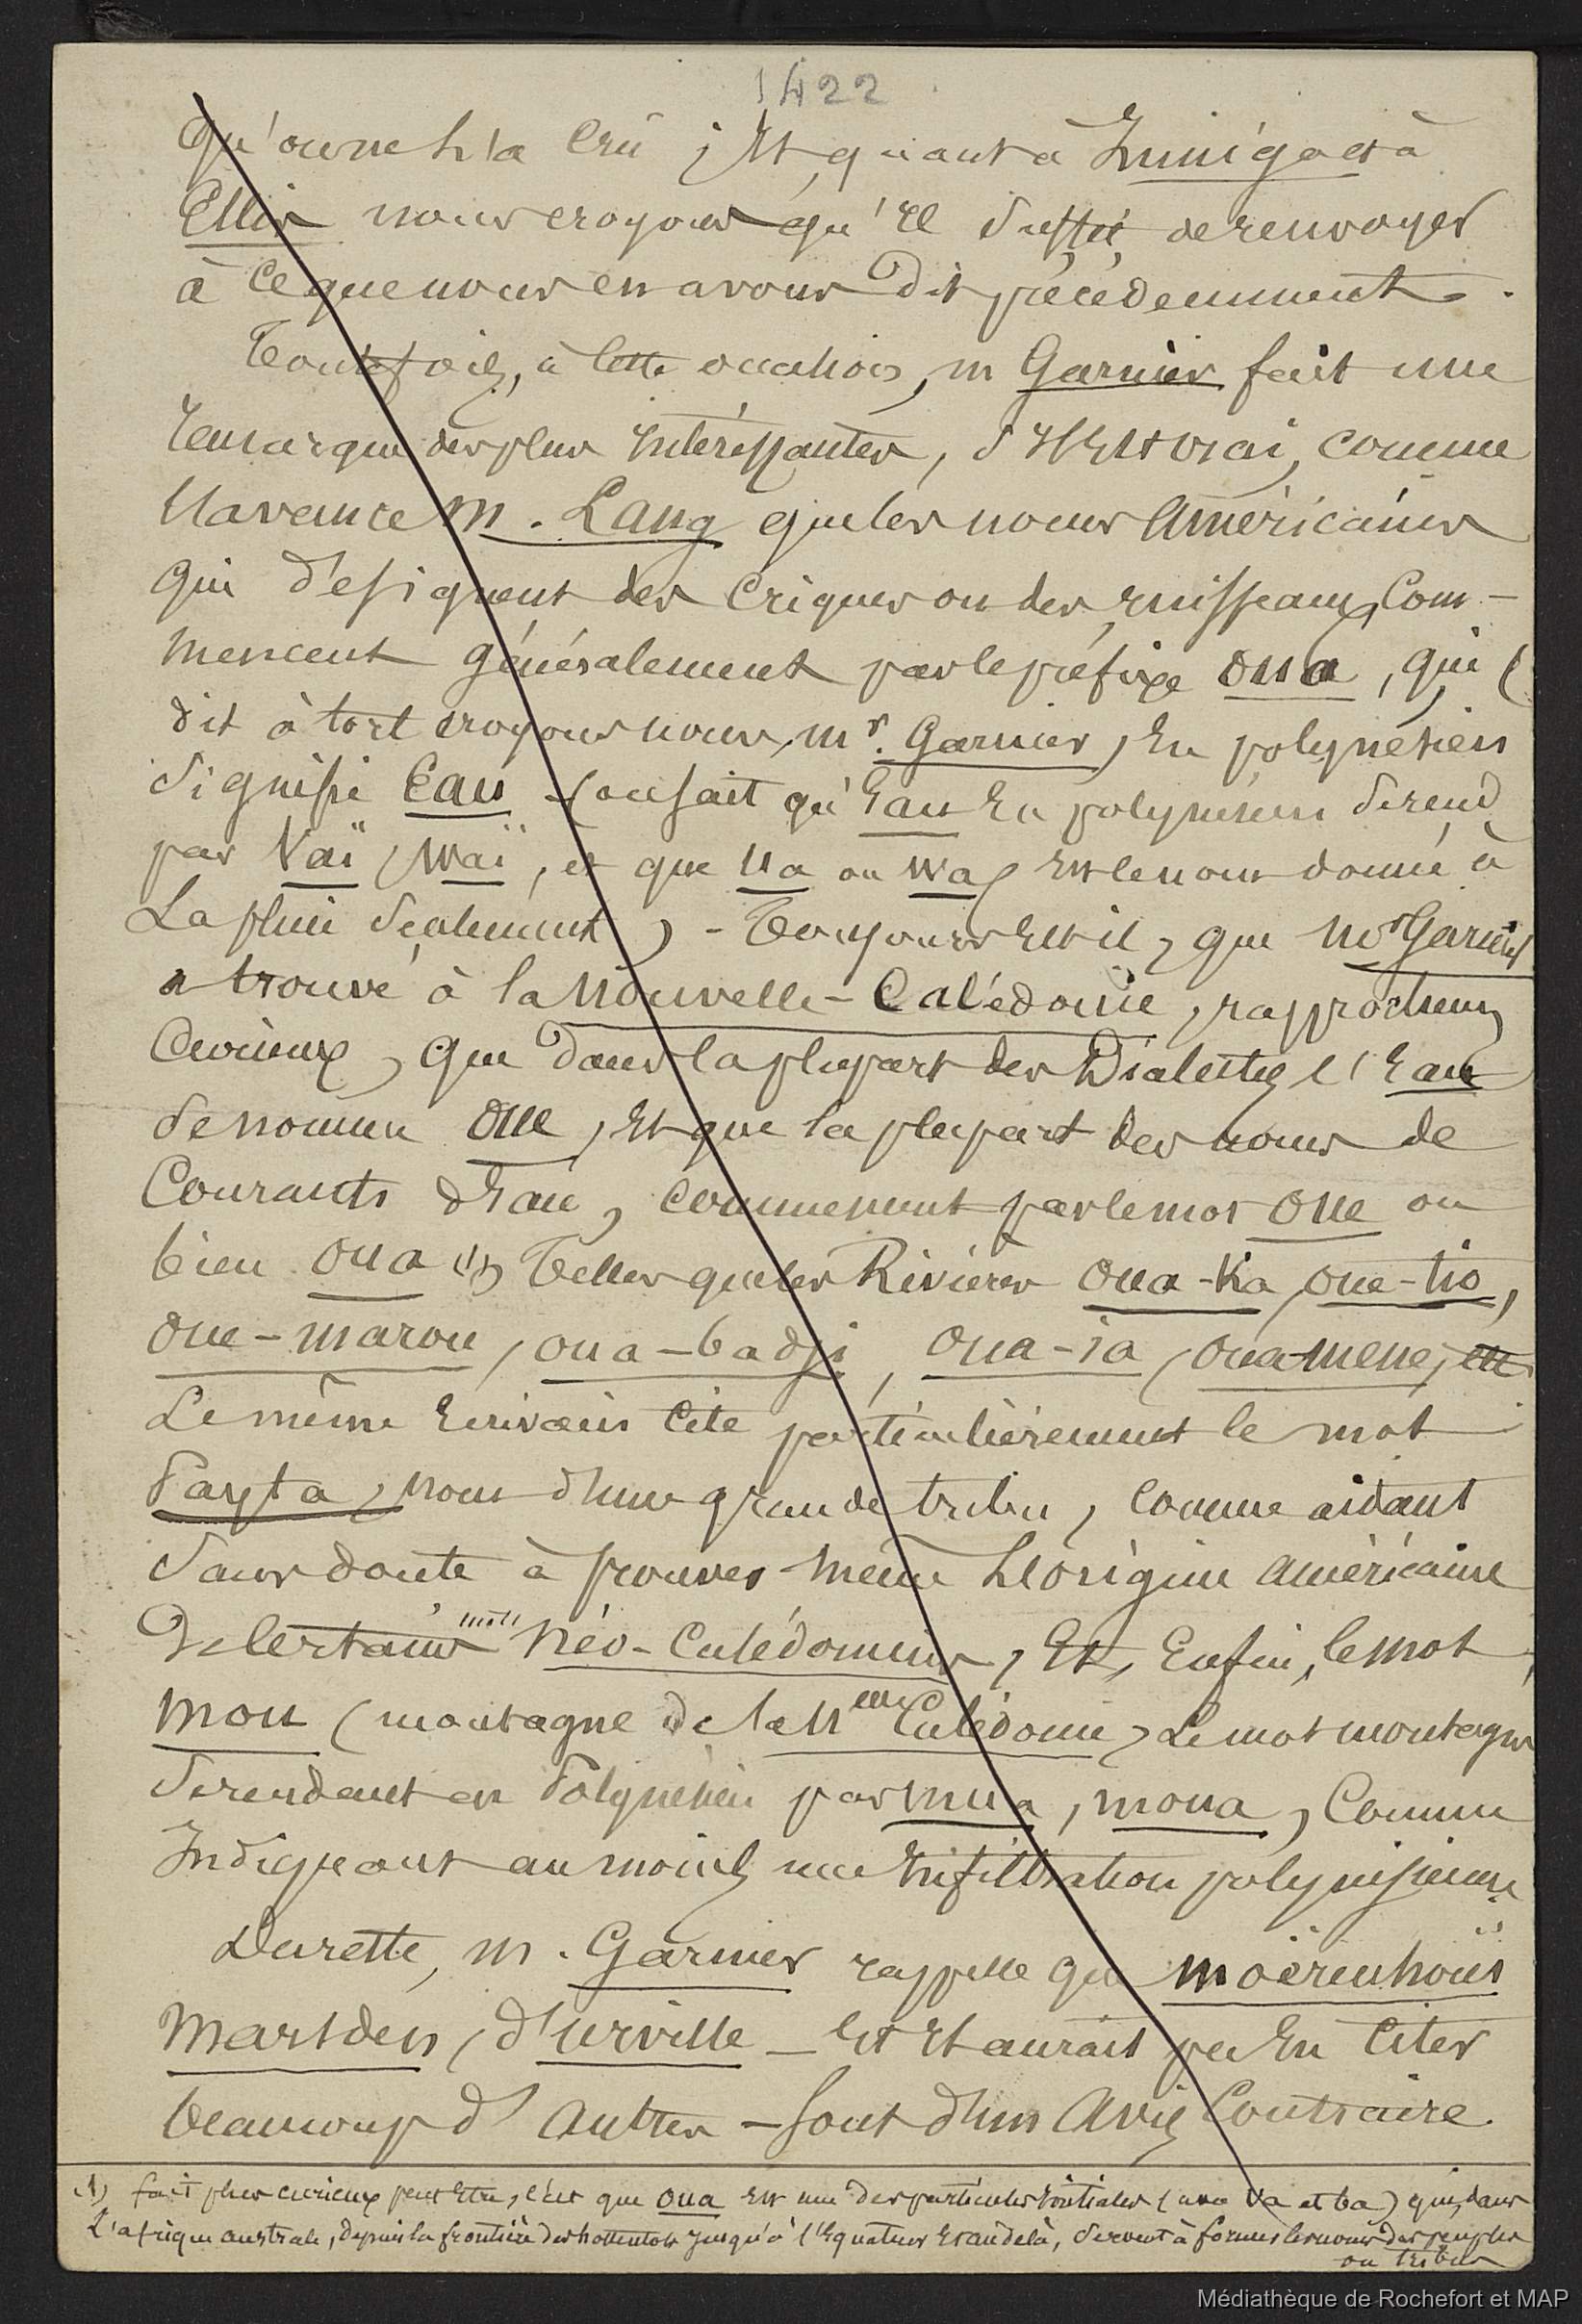 1422
qu'on ne l'a crû ; Et quant à Zunigo et à
Ellis nous croyons qu'il suffit de renvoyer
à ce que nous en avons dit précédemment.
Toutefois, à cette occasion, M Garnier fait une
remarque des plus intéressantes, s'il est vrai, comme
l'avance M. Lang que les noms américains
qui désignent des criques ou des ruisseaux, com-
mencent généralement par le préfixe oua, qui (
dit à tort croyons nous, Mr. Garnier, En polynésien
signifie Eau (on sait qu'Eau En polynésien se rend
par Vaï, Waï, et que Ua ou wa, est le nom donné à
La pluie seulement) - Toujours est il, que Mr Garnier
a trouvé à la Nouvelle-Calédonie, rapprochement
curieux, que dans la plupart des Dialectes l'Eau
se nomme oue, et que la plupart des noms de
Courants d'Eau, commencent par le mot oue ou
bien oua (1) Telles que les Rivières oua-ka, oue-tio,
oue-marou, oua-badji, oua-ia, ouamene, etc
Le même Ecrivain cite particulièrement le mot
Payta, nom d'une grande tribu, comme aidant
sans doute à prouver même l'origine américaine
De certains mots Néo-Calédoniens, Et, Enfin, le mot
mou (montagne de la Nelle Calédonie) Le mot montagne
se rendant en Polynésien par mua, moua, comme
Indiquant au moins une infiltration polynésienne
Du reste, M. Garnier rappelle que Moërenhoüt
Marsden, d'urville — Et Il aurait pu En citer
beaucoup d'autres — sont d'un avis Contraire.
(1) fait plus curieux peut être, c'est que oua est une des particules initiales (ava Va et ba) qui, dans
L'afrique australe, depuis la frontière des hottentots jusqu'à l'Equateur Et au delà, servent à former les noms des peuples
ou tribus
Médiathèque de Rochefort et MAP